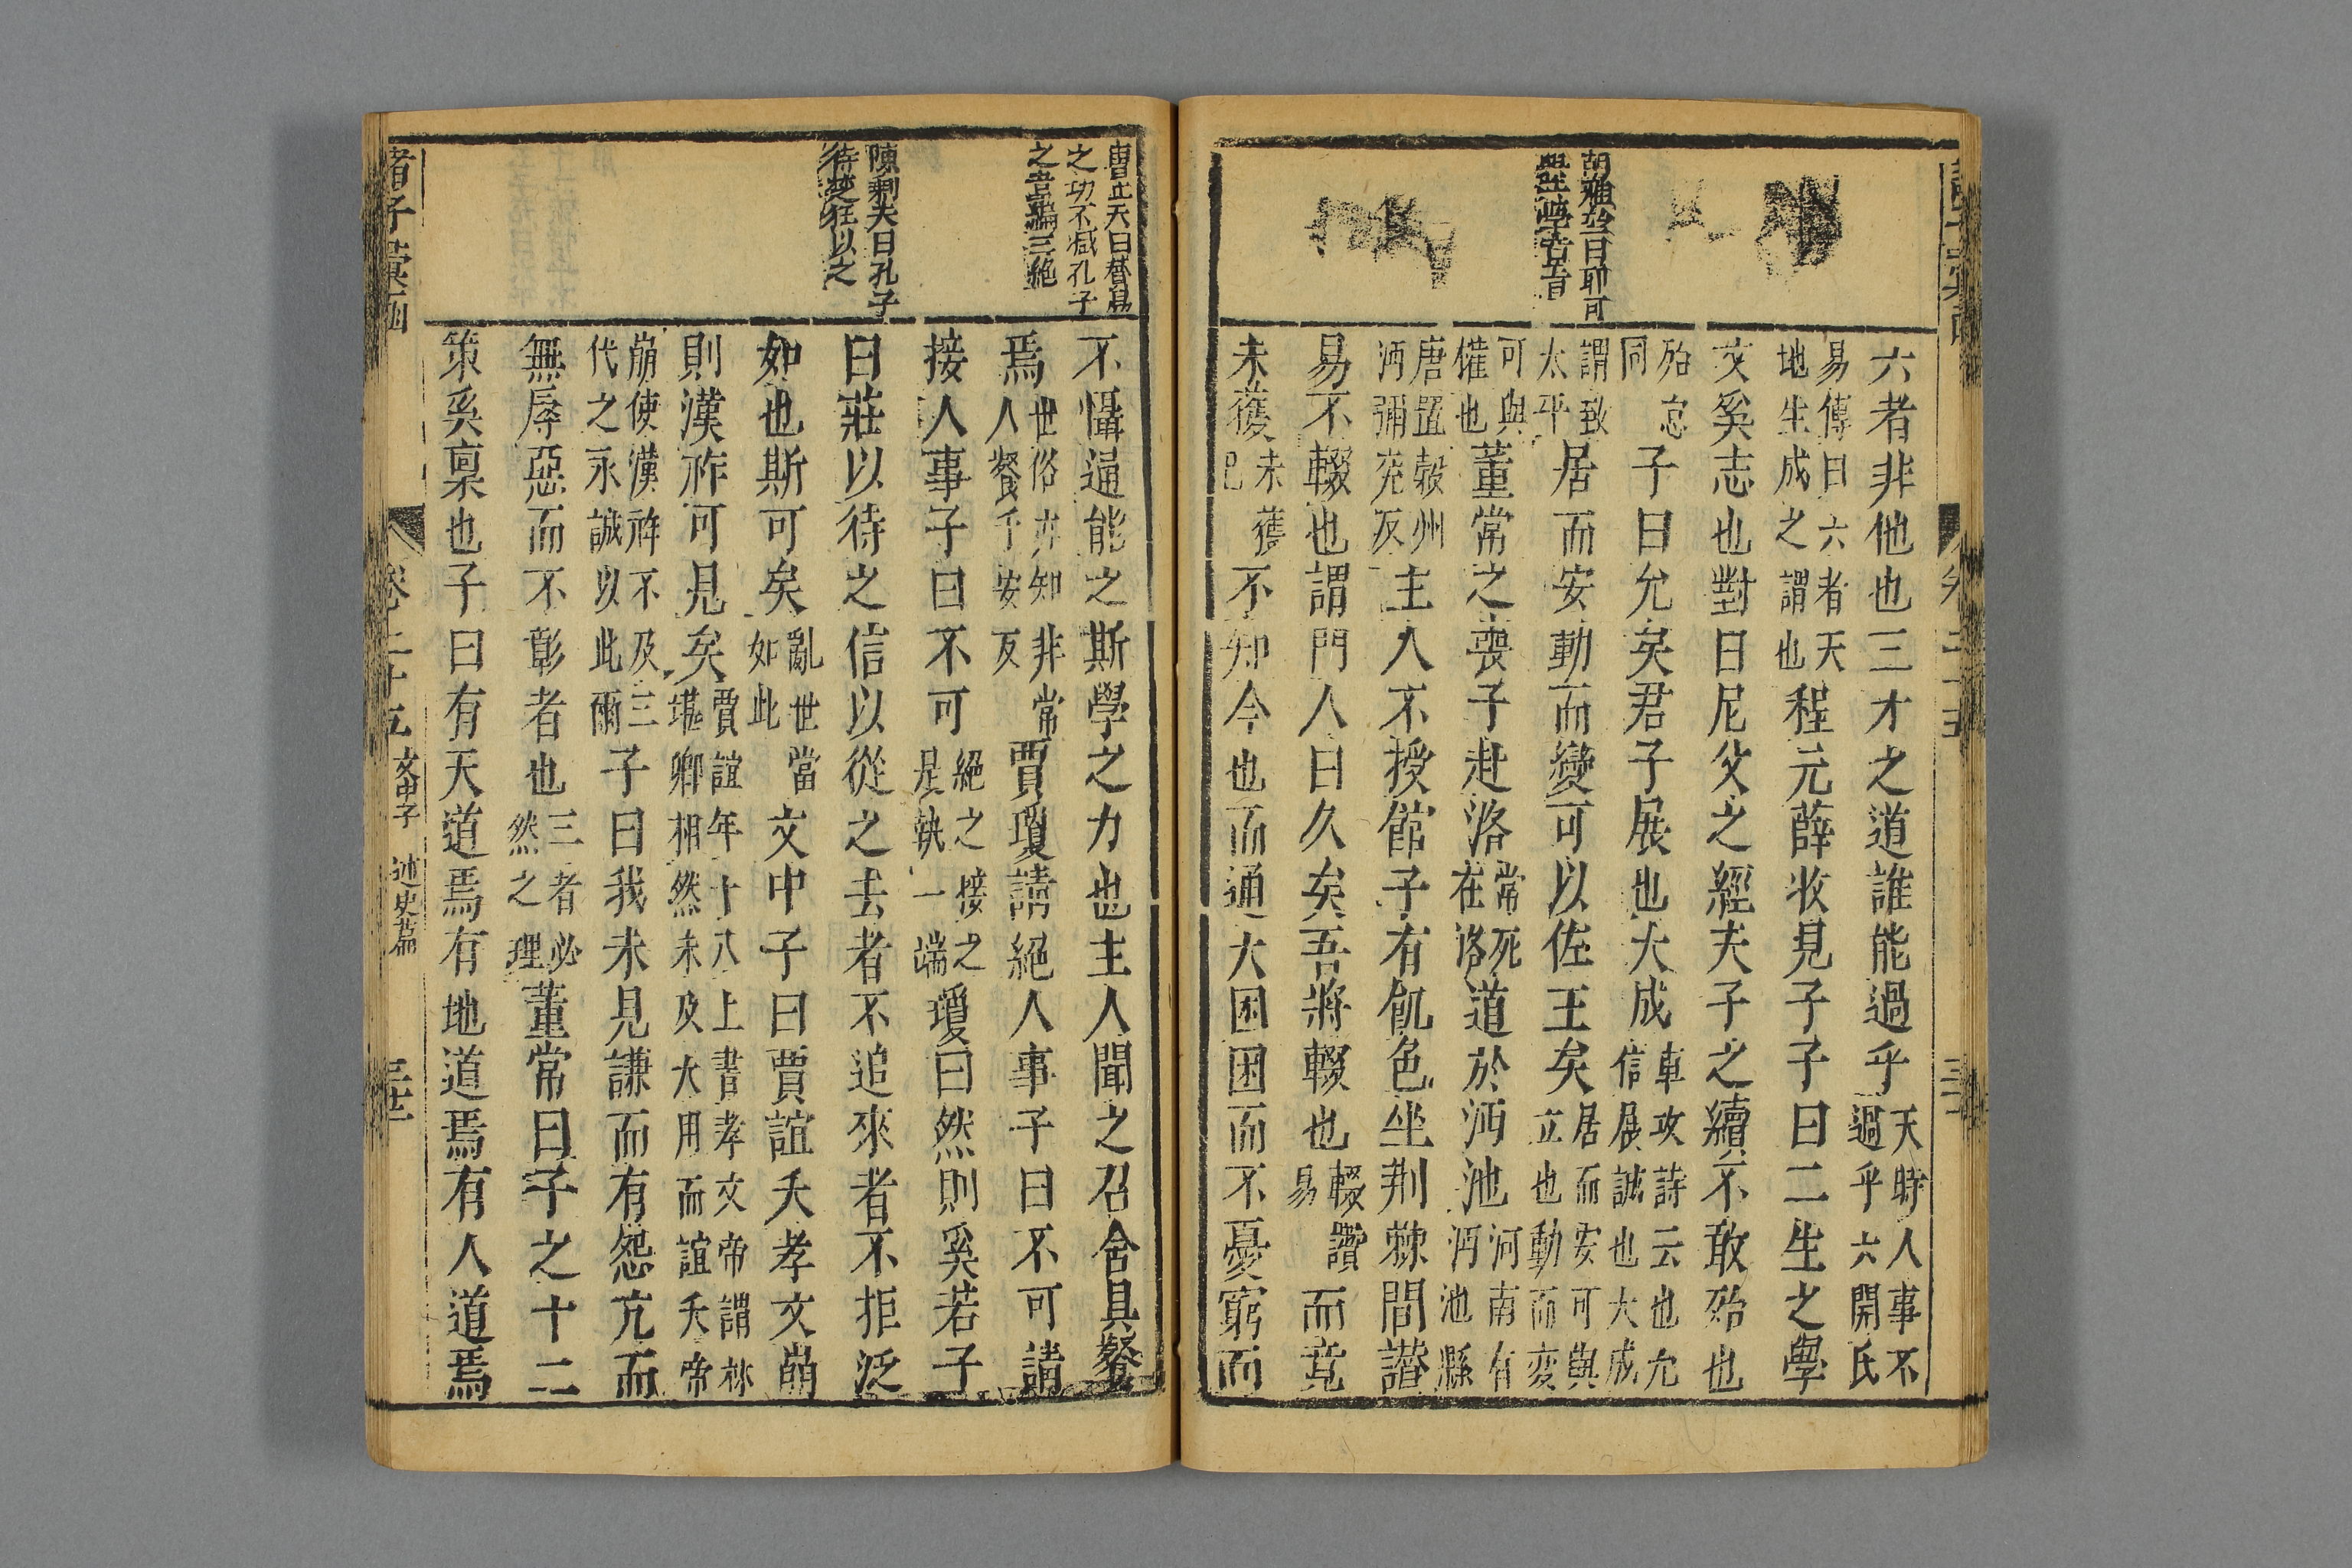 胡雅
與性
六者非他也三才之道誰能過乎天時人事不過乎六關氏
易傳曰六者天地生成之謂也程元薛收見子子曰二生之學
文奚志也對曰尼父之經夫子之續不敢殆也
殆怠同子曰允矣君子展也大成車攻詩云也允信展誠也大成
謂致太平居而安動而變可以佐王矣居而安可與立也動而变
可與權也董常之喪子赴洛常死在洛道於沔池河南有沔池縣
唐置穀州沔彌兖反主人不授館子有飢色坐荆棘間讃
易不輟也謂門人曰久矣吾將輟也輟讚易而竟
未獲未獲已不知今也而通大困困而不憂窮而
曹正天曰替易
之功不減孔子
之韋編三絕
陳剩夫曰孔子
待楚狂以之
不懾通能之斯學之力也主人聞之召舍具餐
焉世俗亦知非常人餐千安反賈瓊請絕人事子曰不可請
接人事子曰不可絕之接之是執一端瓊曰然則奚若子
曰莊以待之信以從之去者不追來者不拒泛
如也斯可矣亂世當如此文中子曰賈誼夭孝文崩
則漢祚可見矣賈誼年十八上書孝文帝謂堪卿相然未及大用而誼夭帝
崩使漢祚不及三代之永誠以此爾子曰我未見謙而有怨亢而
無辱惡而不彰者也三者必然之理董常曰子之十二
策奚稟也子曰有天道焉有地道焉有人道焉
諸子彙函
卷二十五
文中子 述史篇